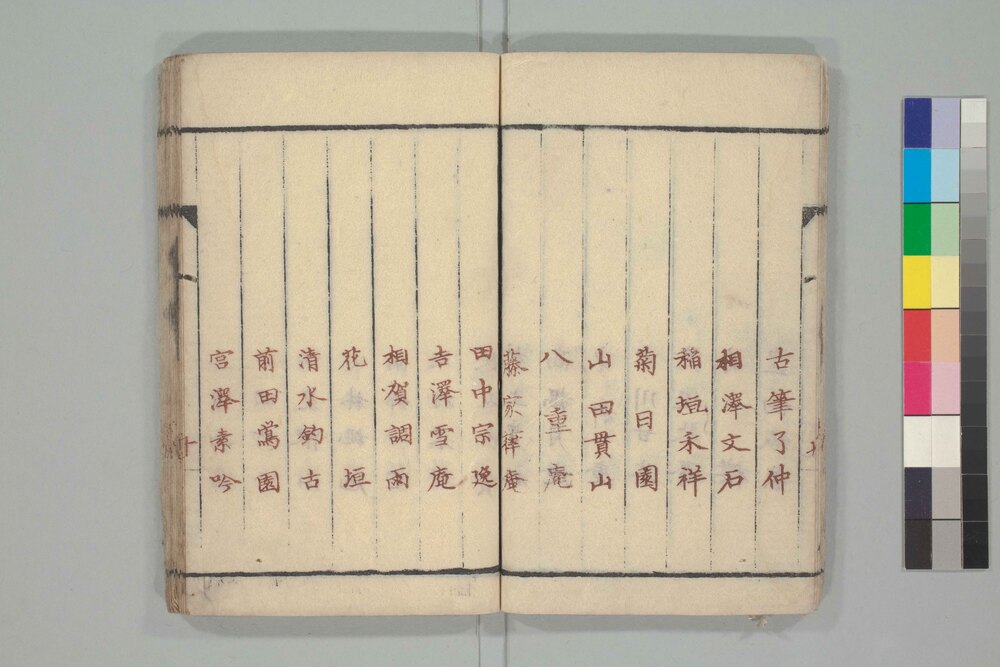 古筆了仲
相澤文石
稲垣永祥
菊日園
山田貫山
八重庵
藤家律庵
田中宗逸
吉澤雪庵
相賀調雨
花垣
清水釣古
前田鶯園
宮澤素吟
十